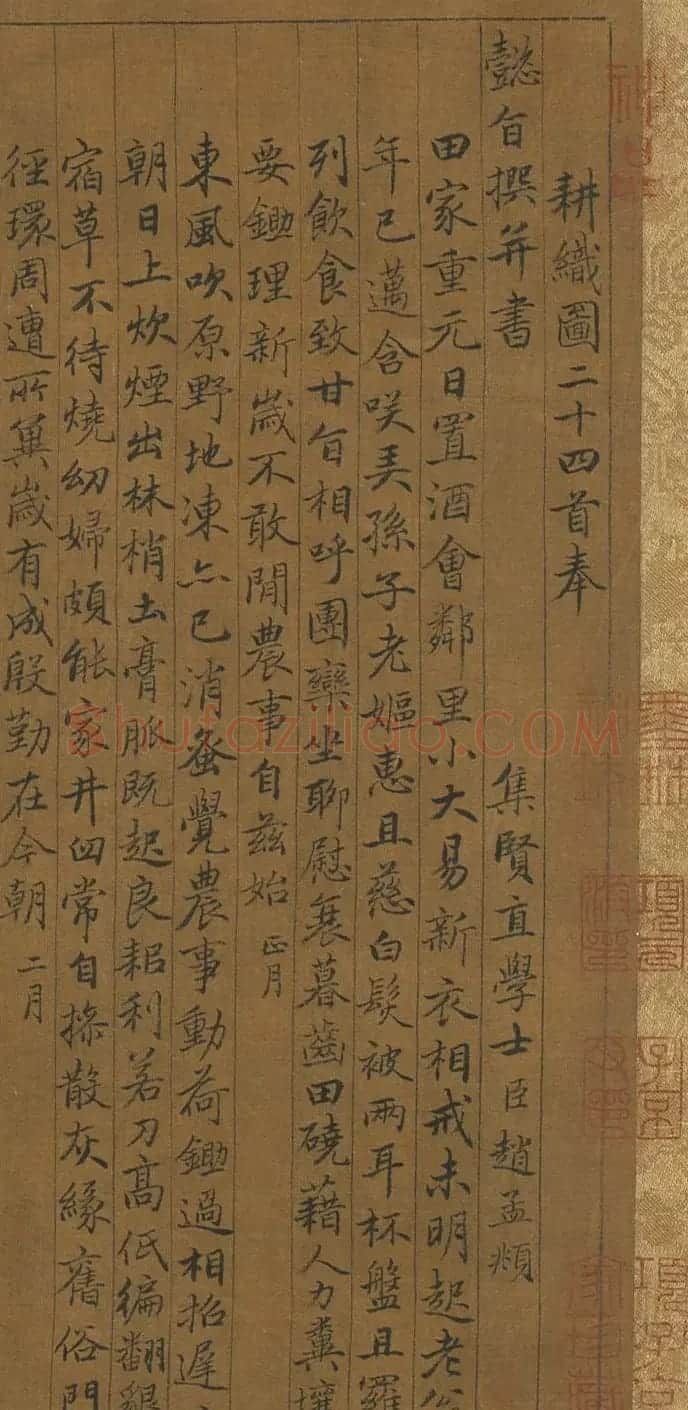 耕織圖二十四首奉
懿旨撰并書 集賢直學士臣趙孟頫
田家重元日置酒會鄰里小大易新衣相戒未明起老
年已邁含咲弄孫子老嫗惠且慈白髮被兩耳杯盤且羅
列飲食致甘旨相呼團欒坐聊慰衰暮齒田磽藉人力糞壤
要鋤理新歲不敢閒農事自茲始 正月
東風吹原野地凍亦已消蚤覺農事動荷鋤過相招遲
朝日上炊煙出林梢土膏脈既起良耜利若刀高低徧翻
宿草不待燒幼婦頗能家井臼常自操散灰緣舊俗門
徑環周遭所冀歲有成殷勤在今朝 二月
shufaziliao.COM